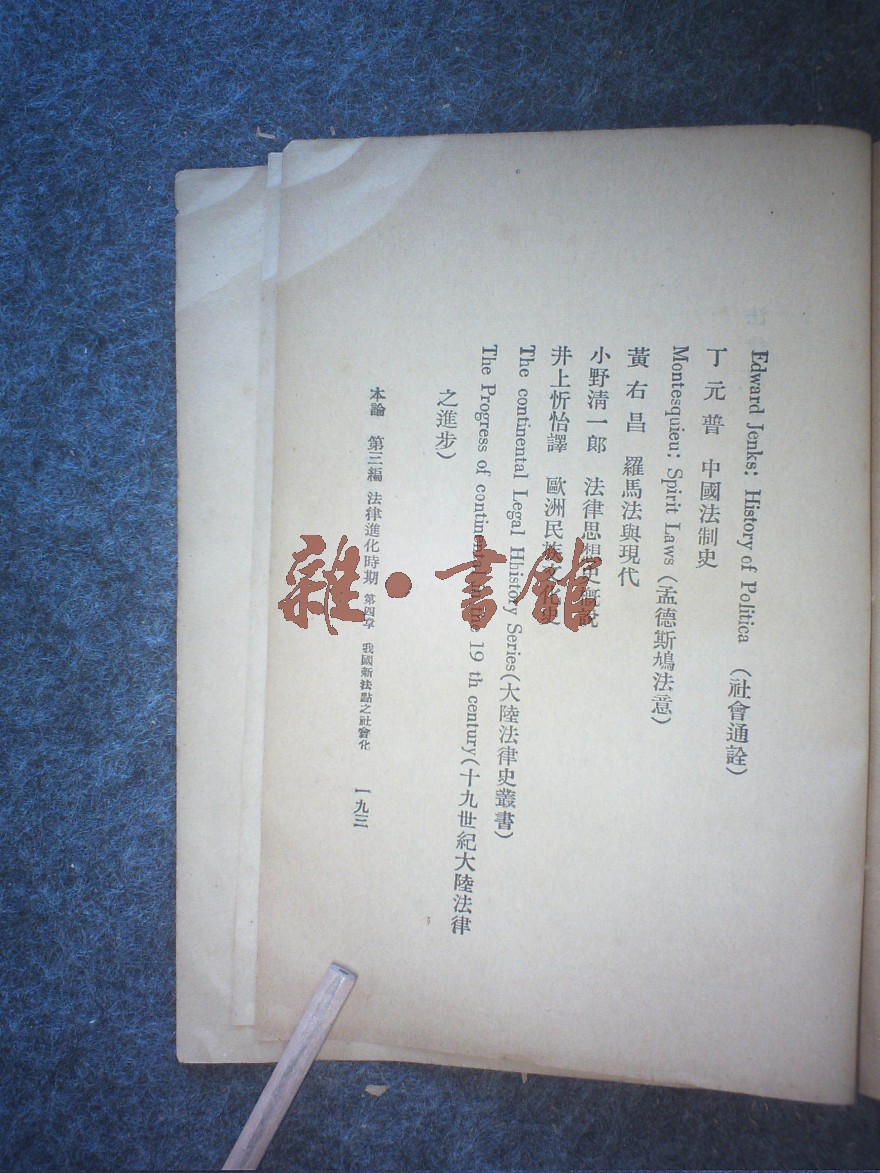 Edward Jenks: History of Politica (社會通詮)
丁元普 中國法制史
Montesquieu: Spirit Laws (孟德斯鳩法意)
黃右昌 羅馬法與現代
小野淸一郎 法律思想史概說
井上忻怡譯 歐洲民族文化史
The continental Legal Hhistory Series(大陸法律史叢書)
The Progress of continental in the 19 th century(十九世紀大陸法律
之進步)
本論 第三編 法律進化時期 第四章 我國新法點之社會化 一九三
雜·書館